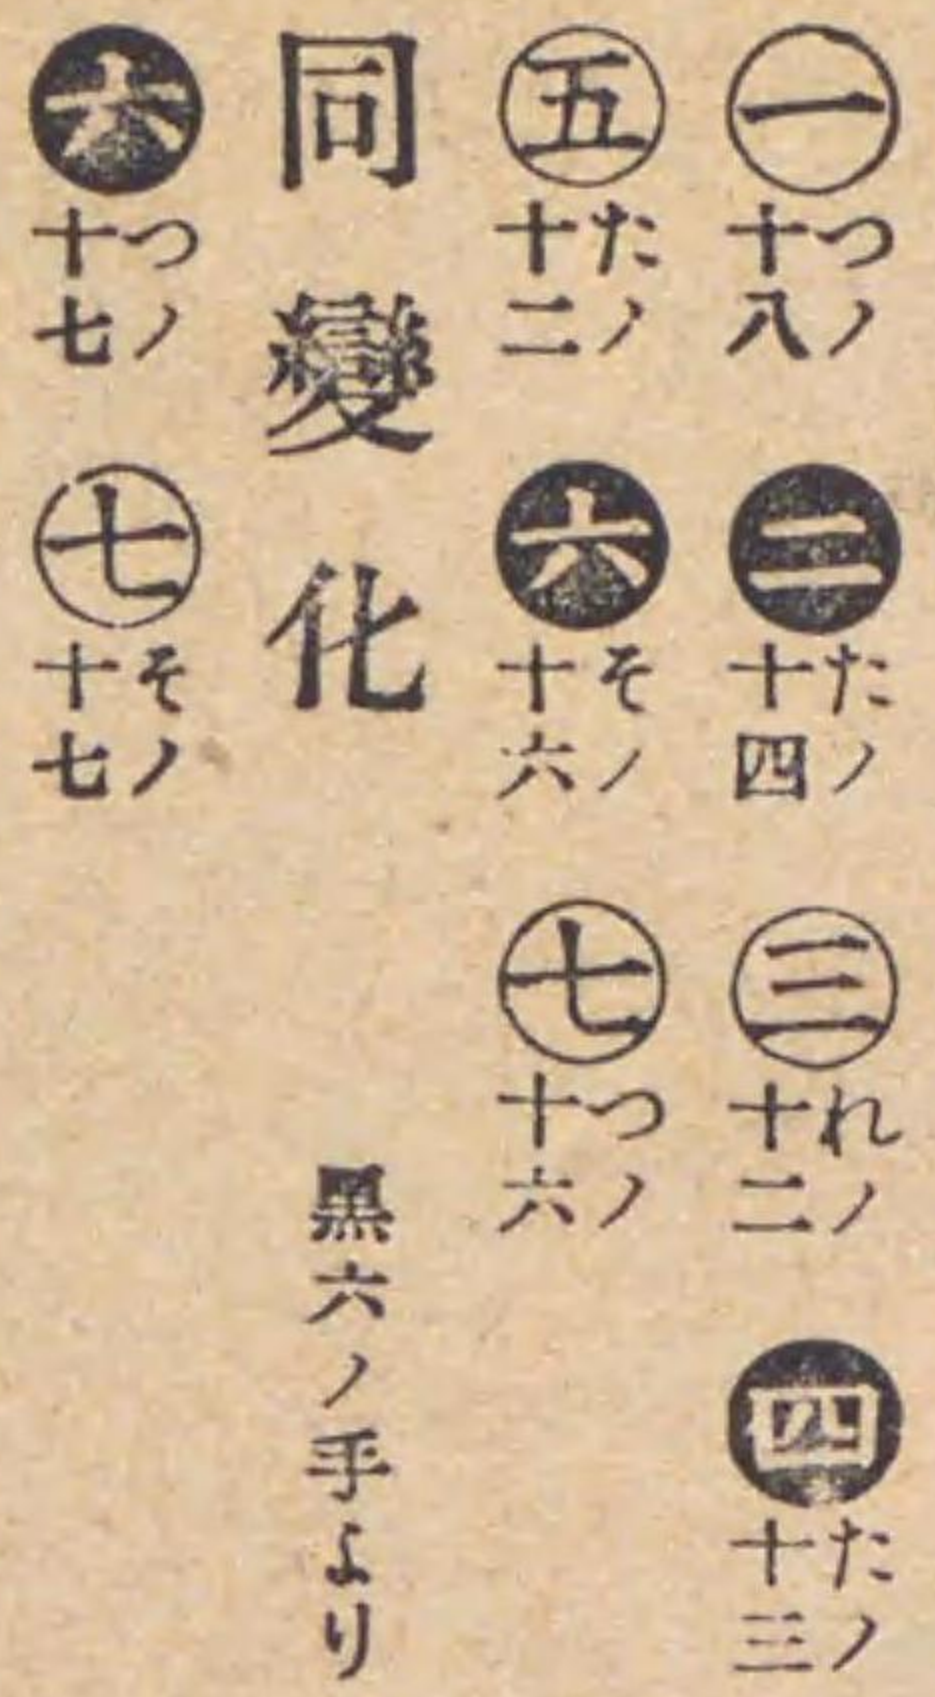 ㊀ つノ十八 ㊁ たノ十四 ㊂ れノ十二 ㊃ たノ十三
㊄ たノ十二 ㊅ そノ十六 ㊆ つノ十六
同變化 黒六ノ手より
㊅ つノ十七 ㊆ そノ十七